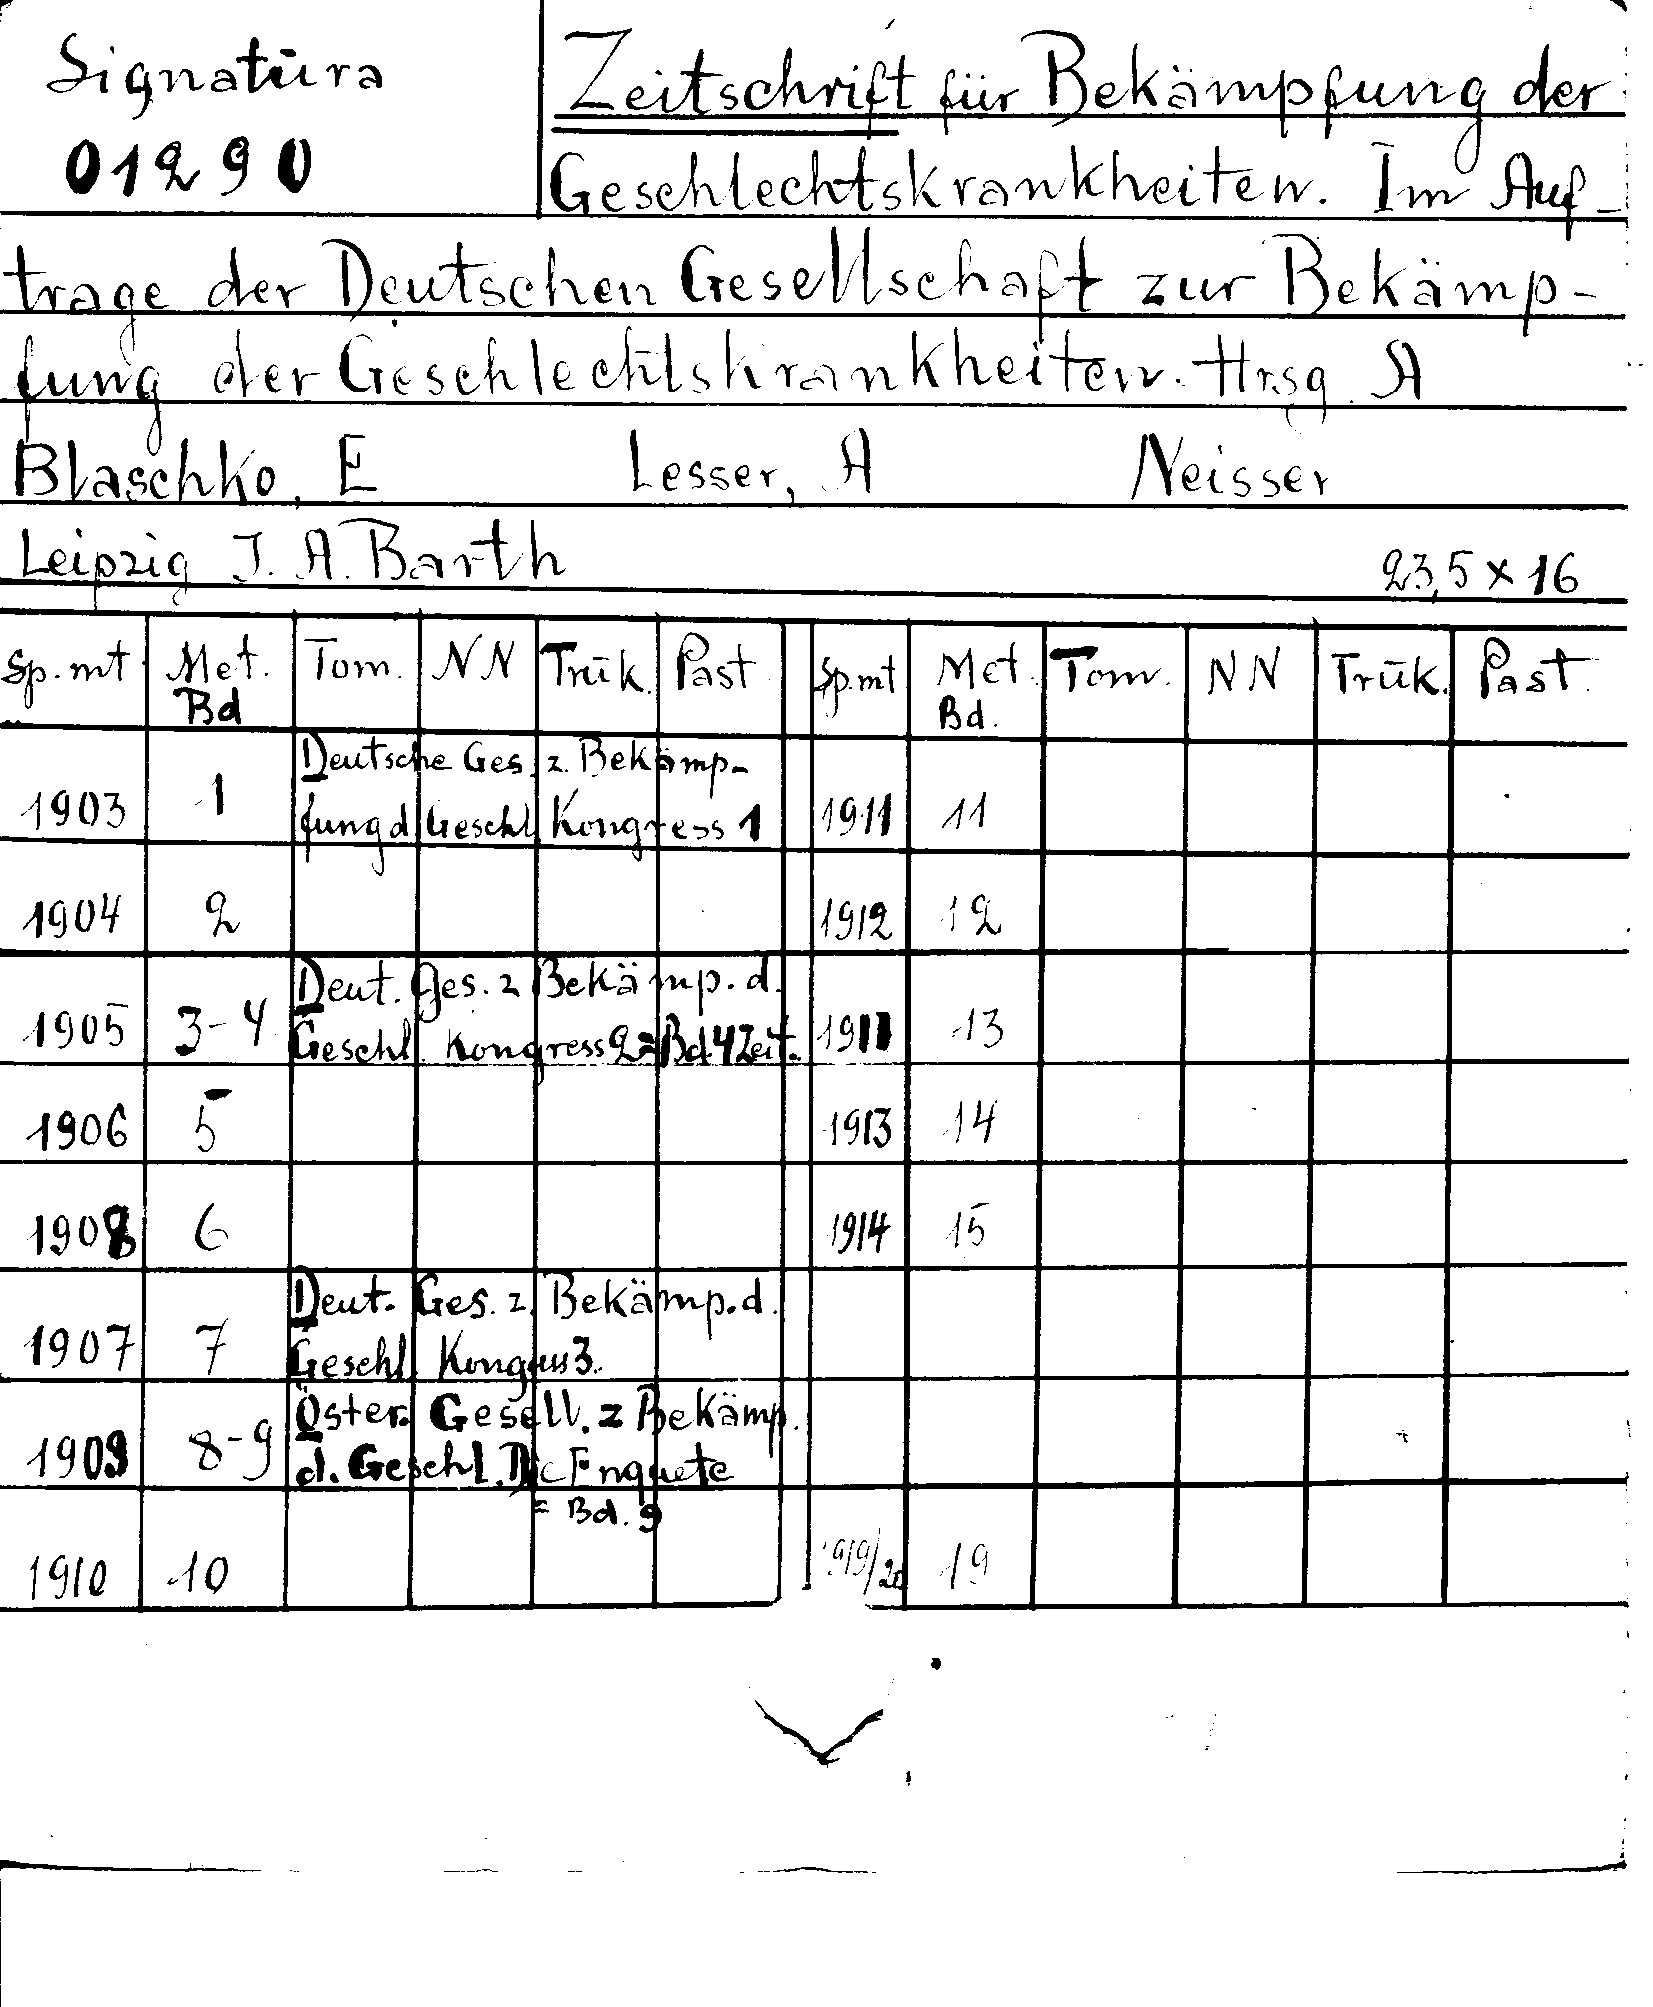 Signatūra
01290
Zeitschrift für Bekämpfung der
Geschlechtskrankheiten. Im Auf-
trage der Deutschen Gesellschaft zur Bekämp-
fung der Geschlechtskrankheiten. Hrsg. A
Blaschko, E Lesser, A Neisser
Leipzig J. A. Barth 23,5 × 16
Sp. mt Met. Tom. NN Trūk. Past Sp. mt Met. Tom. NN Trūk. Past.
Bd Bd.
Deutsche Ges. z. Bekämp-
1903 1 fung d Geschl Kongress 1 1911 11
1904 2 1912 12
Deut. Ges. z Bekämp. d.
1905 3-4 Geschl. Kongress 2 = Bd. 4 Zeit. 13
1906 5 1913 14
1908 6 1914 15
Deut. Ges. z. Bekämp. d.
1907 7 Geschl. Kongress 3.
Öster. Gesell. z Bekämp.
1909 8-9 d. Geschl. Enquete
= Bd. 9
1910 10 1919/20 19